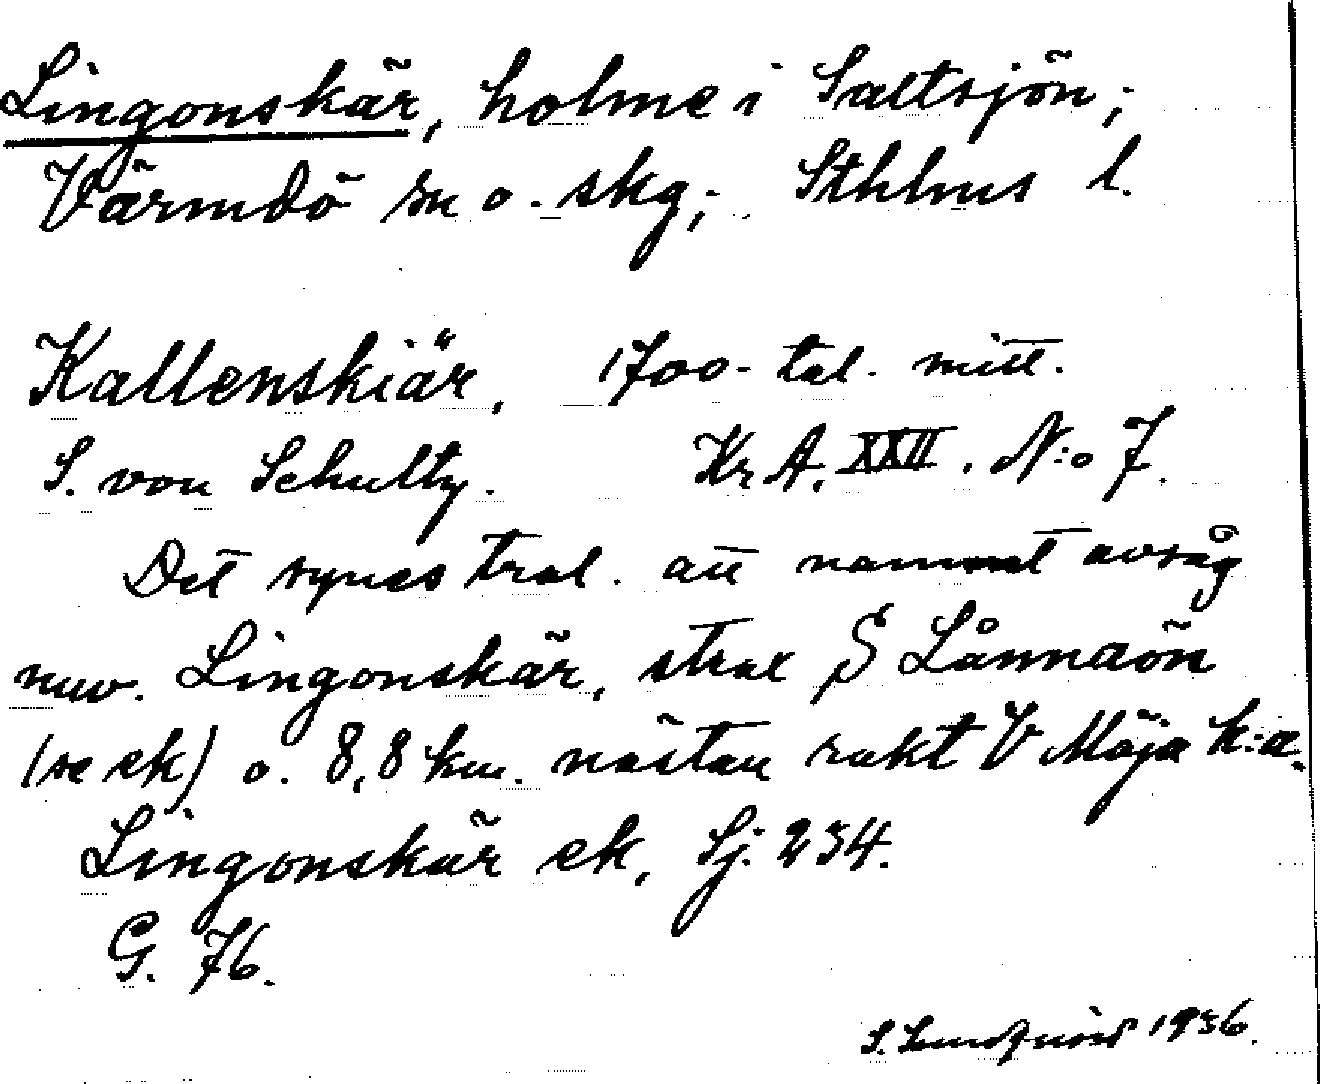 Lingonskär, holme i Saltsjön;
Värmdö sn o. skg; Sthlms l.
Kallenskiär, 1700-tal. mitt.
S. von Schultz. Kr A. XXII. N:o 7.
Det synes tral. att namnet avsåg
nuv. Lingonskär, strax S Lånnaön
(se ek) o. 8,8 km. nästan rakt V Möja k:a.
Lingonskär ek, Sj. 234.
G. 76.
S. Sundqvist 1936.